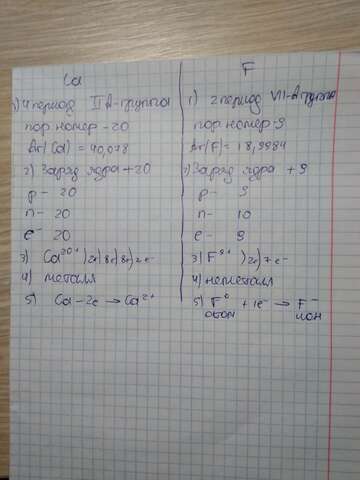 Ca
1) 4 период II A-группа
пор номер - 20
Ar(Ca) = 40,078
2) Заряд ядра +20
p - 20
n - 20
e - 20
3) Ca²⁰⁺)2e)8e)8e)2e⁻
4) металл
5) Ca - 2e → Ca²⁺
F
1) 2 период VII-A группа
пор номер - 9
Ar(F) = 18,9984
2) Заряд ядра + 9
p - 9
n - 10
e - 9
3) F⁹⁺)2e)7e⁻
4) неметалл
5) F⁰ + 1e⁻ → F⁻
атом ион